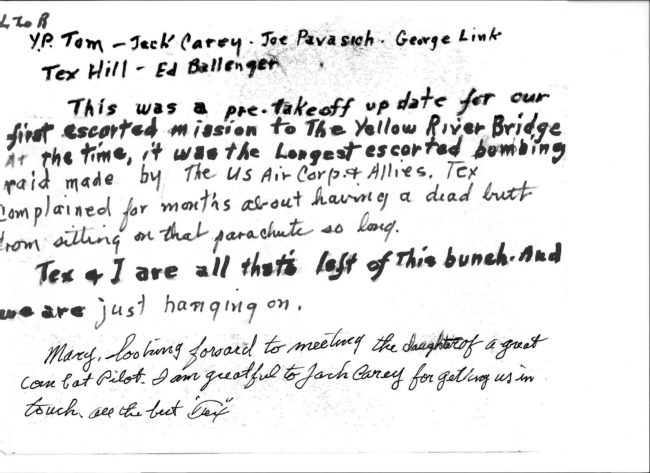 L to R
Y.P. Tom - Jack Carey. Joe Pavasich. George Link
Tex Hill - Ed Ballenger
This was a pre-takeoff up date for our
first escorted mission to The Yellow River Bridge
At the time, it was the Longest escorted bombing
raid made by The US Air Corp. & Allies. Tex
Complained for months about having a dead butt
from sitting on that parachute so long.
Tex & I are all that's left of This bunch. And
we are just hanging on.
Mary, looking forward to meeting the daughter of a great
Combat Pilot. I am greatful to Jack Carey for getting us in
touch. all the best "Tex"